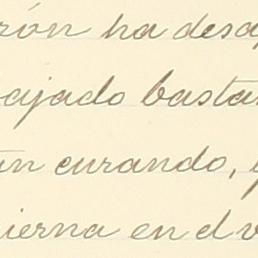 rón ha desap
bajado bastan
án curando, y
pierna en el v